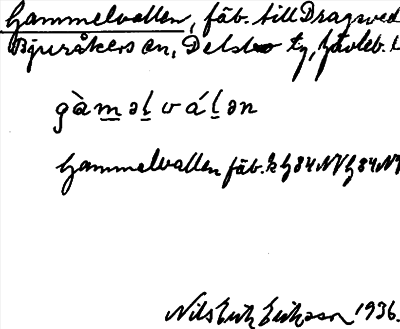 Hammelvallen, fäb. till Dragsved
Bjuråkers sn, Delsbo tg, Gävleb. l
gàməl válən
Hammelvallen fäb. k
Nils Erik Eriksson 1936.